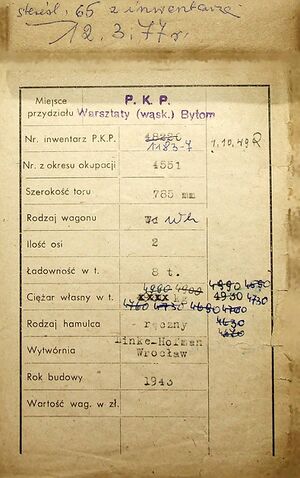 z inwentarza
12.3.77 r.
Miejsce przydziału P. K. P. Warsztaty (wąsk.) Bytom
Nr. inwentarz P.K.P. 1183-7 1.10.49
Nr. z okresu okupacji 4551
Szerokość toru 785 mm
Rodzaj wagonu Wd
Ilość osi 2
Ładowność w t. 8 t.
Ciężar własny w t. xxxx kg 4930 4730
4760 4730 4690 4700
Rodzaj hamulca ręczny 4630
Wytwórnia Linke-Hofman Wrocław
Rok budowy 1943
Wartość wag. w zł.